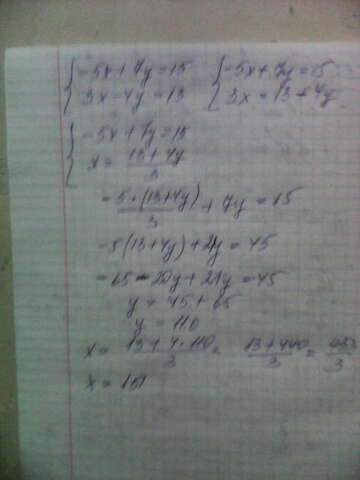 { -5x + 7y = 15 { -5x + 7y = 15
3x - 4y = 13 3x = 13 + 4y
{ -5x + 7y = 15
x = (13 + 4y)/3
-5·(13+4y)/3 + 7y = 15
-5(13+4y) + 21y = 45
-65 - 20y + 21y = 45
y = 45 + 65
y = 110
x = (13 + 4·110)/3 = (13 + 440)/3 = 453/3
x = 151